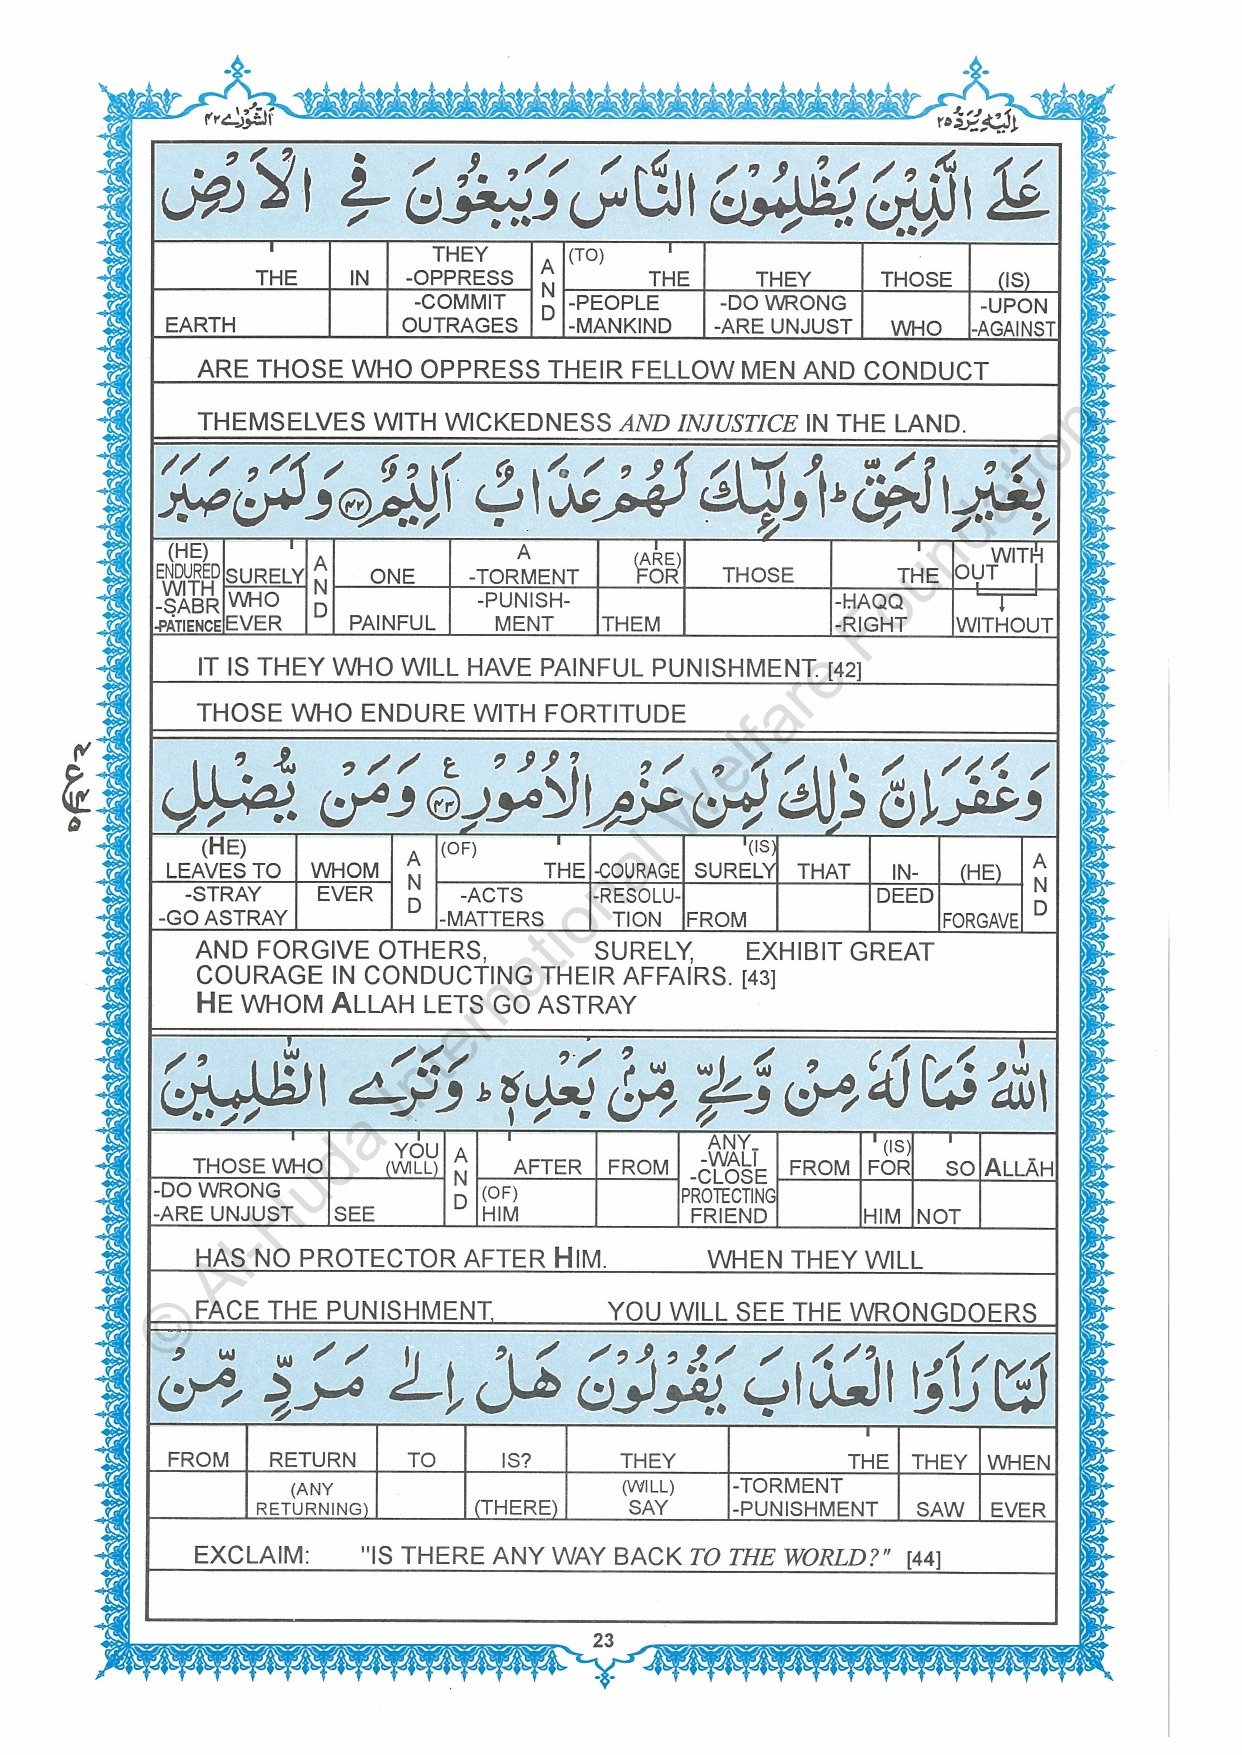 اَلشُّوْرٰى ٤٢
اِلَيْهِ يُرَدُّ ٢٥
عَلَى الَّذِيْنَ يَظْلِمُوْنَ النَّاسَ وَيَبْغُوْنَ فِي الْاَرْضِ
THEY A (TO)
THE IN -OPPRESS N THE THEY THOSE (IS)
-COMMIT D -PEOPLE -DO WRONG -UPON
EARTH OUTRAGES -MANKIND -ARE UNJUST WHO -AGAINST
ARE THOSE WHO OPPRESS THEIR FELLOW MEN AND CONDUCT
THEMSELVES WITH WICKEDNESS AND INJUSTICE IN THE LAND.
بِغَيْرِ الْحَقِّ ؕ اُولٰٓئِكَ لَهُمْ عَذَابٌ اَلِيْمٌ ﴿٤٢﴾ وَلَمَنْ صَبَرَ
(HE) A A (ARE) WITH
ENDURED SURELY N ONE -TORMENT FOR THOSE THE OUT
WITH WHO D -PUNISH- -ḤAQQ
-ṢABR EVER PAINFUL MENT THEM -RIGHT WITHOUT
-PATIENCE
IT IS THEY WHO WILL HAVE PAINFUL PUNISHMENT. [42]
THOSE WHO ENDURE WITH FORTITUDE
وَغَفَرَ اِنَّ ذٰلِكَ لَمِنْ عَزْمِ الْاُمُوْرِ ﴿٤٣﴾ ع وَمَنْ يُّضْلِلِ
(HE) A (OF) (IS) A
LEAVES TO WHOM N THE -COURAGE SURELY THAT IN- (HE) N
-STRAY EVER D -ACTS -RESOLU- DEED D
-GO ASTRAY -MATTERS TION FROM FORGAVE
AND FORGIVE OTHERS, SURELY, EXHIBIT GREAT
COURAGE IN CONDUCTING THEIR AFFAIRS. [43]
HE WHOM ALLAH LETS GO ASTRAY
اللّٰهُ فَمَا لَهٗ مِنْ وَّلِيٍّ مِّنْۢ بَعْدِهٖ ؕ وَتَرَى الظّٰلِمِيْنَ
YOU A ANY (IS)
THOSE WHO (WILL) N AFTER FROM -WALĪ FROM FOR SO ALLĀH
-DO WRONG D (OF) -CLOSE
-ARE UNJUST SEE HIM PROTECTING HIM NOT
FRIEND
HAS NO PROTECTOR AFTER HIM. WHEN THEY WILL
FACE THE PUNISHMENT, YOU WILL SEE THE WRONGDOERS
لَمَّا رَاَوُا الْعَذَابَ يَقُوْلُوْنَ هَلْ اِلٰى مَرَدٍّ مِّنْ
FROM RETURN TO IS? THEY THE THEY WHEN
(ANY (WILL) -TORMENT
RETURNING) (THERE) SAY -PUNISHMENT SAW EVER
EXCLAIM: "IS THERE ANY WAY BACK TO THE WORLD?" [44]
23
© Al-Huda International Welfare Foundation